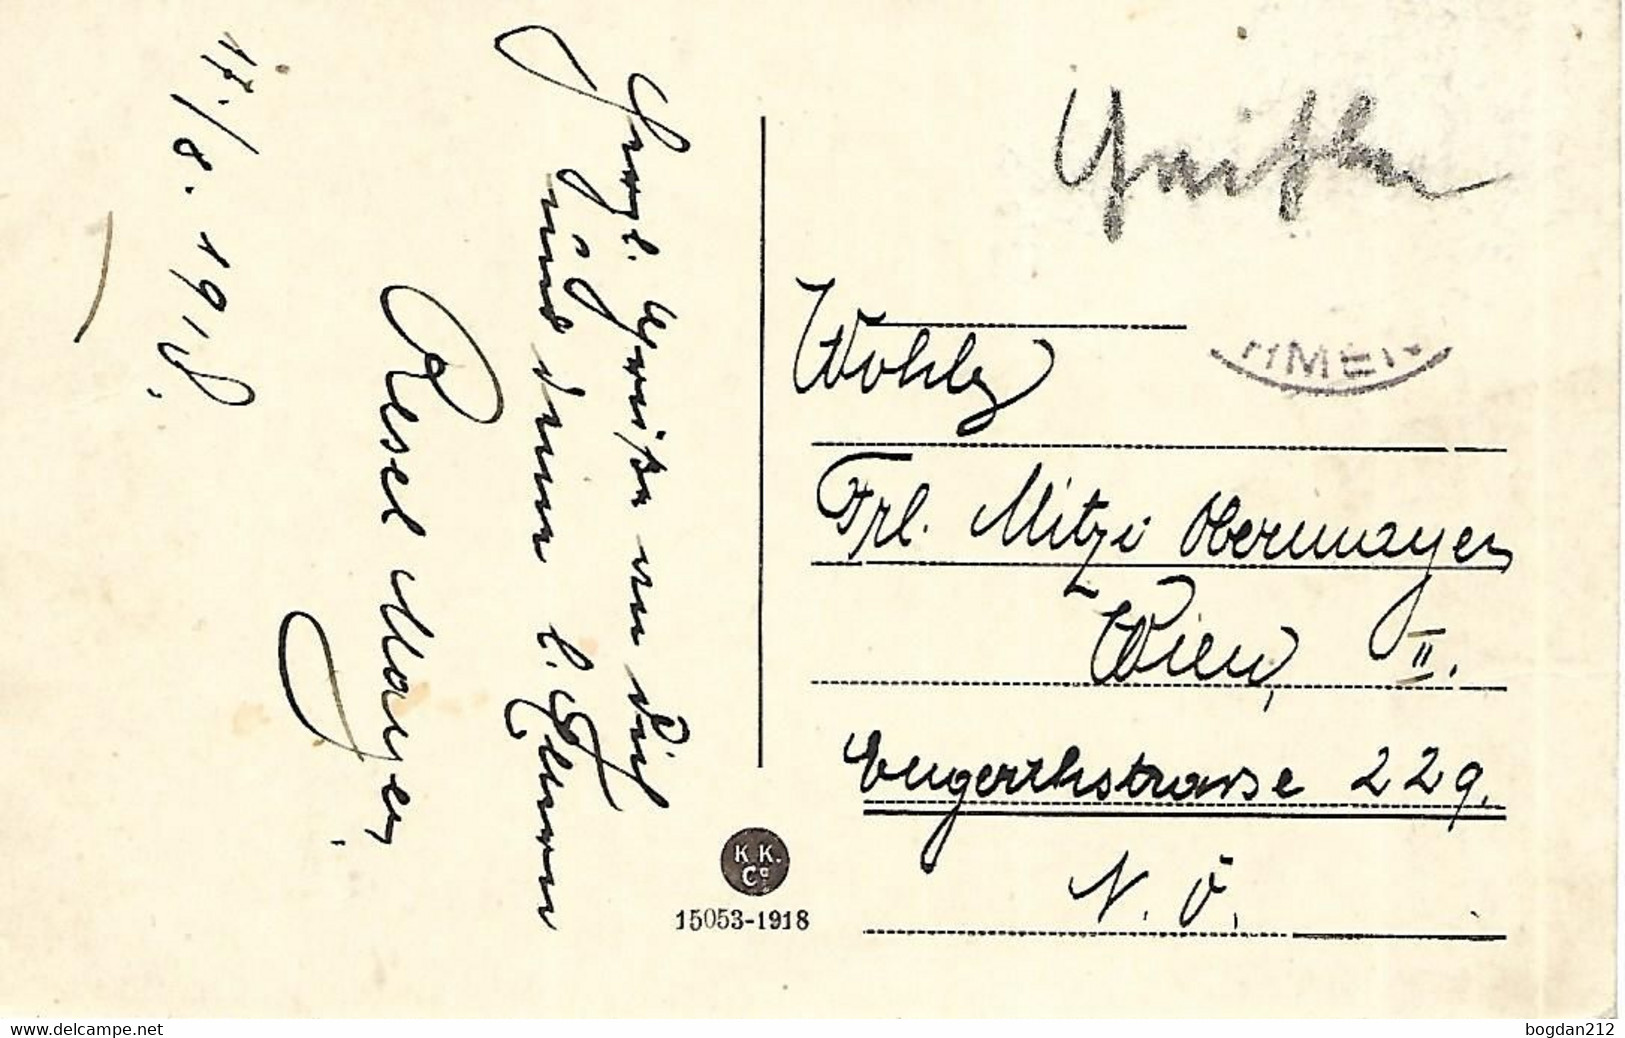 17./8. 1918.
Herzl. Grüße an dich
und deine l. Eltern
Resel Mayer
Wohlg
Frl. Mitzi Obermayer
Wien, II.
Engerthstrasse 229.
N. Ö.
K K.
Co
15053-1918
www.delcampe.net
bogdan212